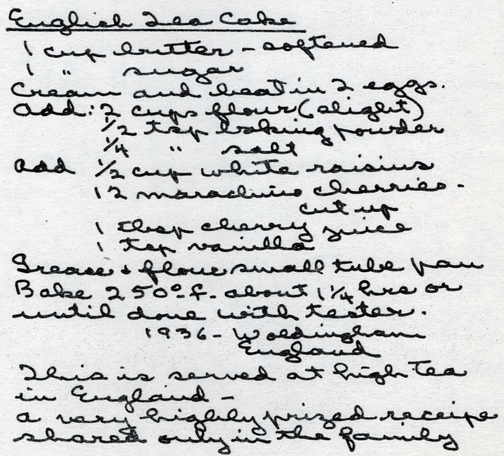 English Tea Cake
1 cup butter - softened
1 " sugar
Cream and beat in 2 eggs.
Add: 2 cups flour (slight)
1/2 tsp baking powder
1/4 " salt
Add 1/2 cup white raisins
12 maraschino cherries -
cut up
1 tbsp cherry juice
1 tsp vanilla
Grease & flour small tube pan
Bake 250° f. about 1 1/4 hrs or
until done with tester.
1936 - Woldingham
England
This is served at high tea
in England -
a very highly prized receipe
shared only in the family